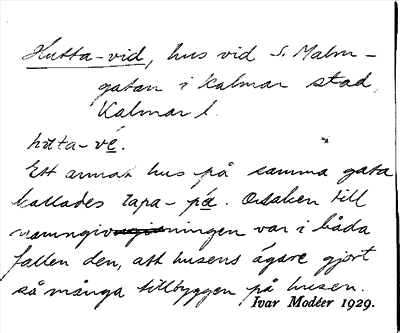 Hutta-vid, hus vid S. Malm-
gatan i Kalmar stad,
Kalmar l.
hùta-vé.
Ett annat hus på samma gata
kallades Tapa-på. Orsaken till
namngivningen var i båda
fallen den, att husens ägare gjort
så många tillbyggen på husen.
Ivar Modéer 1929.